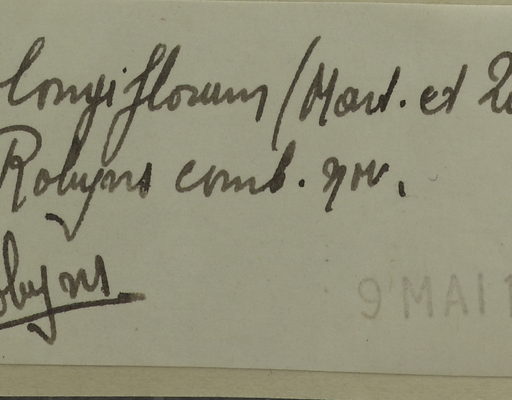 longiflorum (Mart. et Zu
Robyns comb. nov.
obyns
9 MAI 1